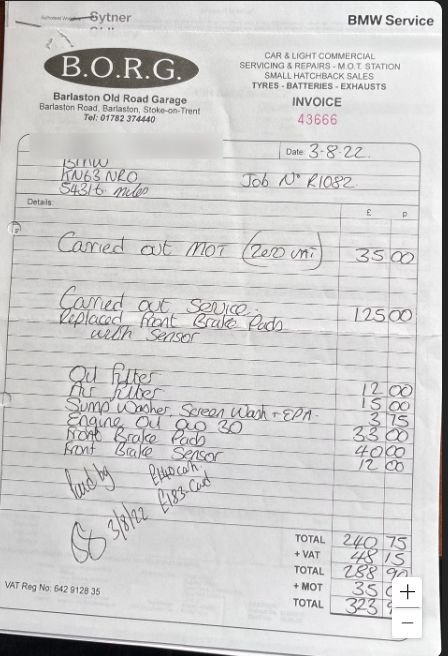 Sytner
BMW Service
B.O.R.G.
Barlaston Old Road Garage
Barlaston Road, Barlaston, Stoke-on-Trent
Tel: 01782 374440
CAR & LIGHT COMMERCIAL
SERVICING & REPAIRS - M.O.T. STATION
SMALL HATCHBACK SALES
TYRES - BATTERIES - EXHAUSTS
INVOICE
43666
Date: 3-8-22.
BMW
KN63 NRO
54316 miles
Job No R1082
Details:
£ p
Carried out MOT (Zero VAT) 35 00
Carried out Service. 125 00
Replaced Front Brake Pads
with Sensor
Oil Filter 12 00
Air Filter 15 00
Sump Washer, Screen Wash + EPA. 3 75
Engine Oil 0W 30 33 00
Front Brake Pads 40 00
Front Brake Sensor 12 00
Paid by £140 cash
£183 Card
3/8/22
TOTAL 240 75
+ VAT 48 15
TOTAL 288 90
+ MOT 35
TOTAL 323
VAT Reg No: 642 9128 35